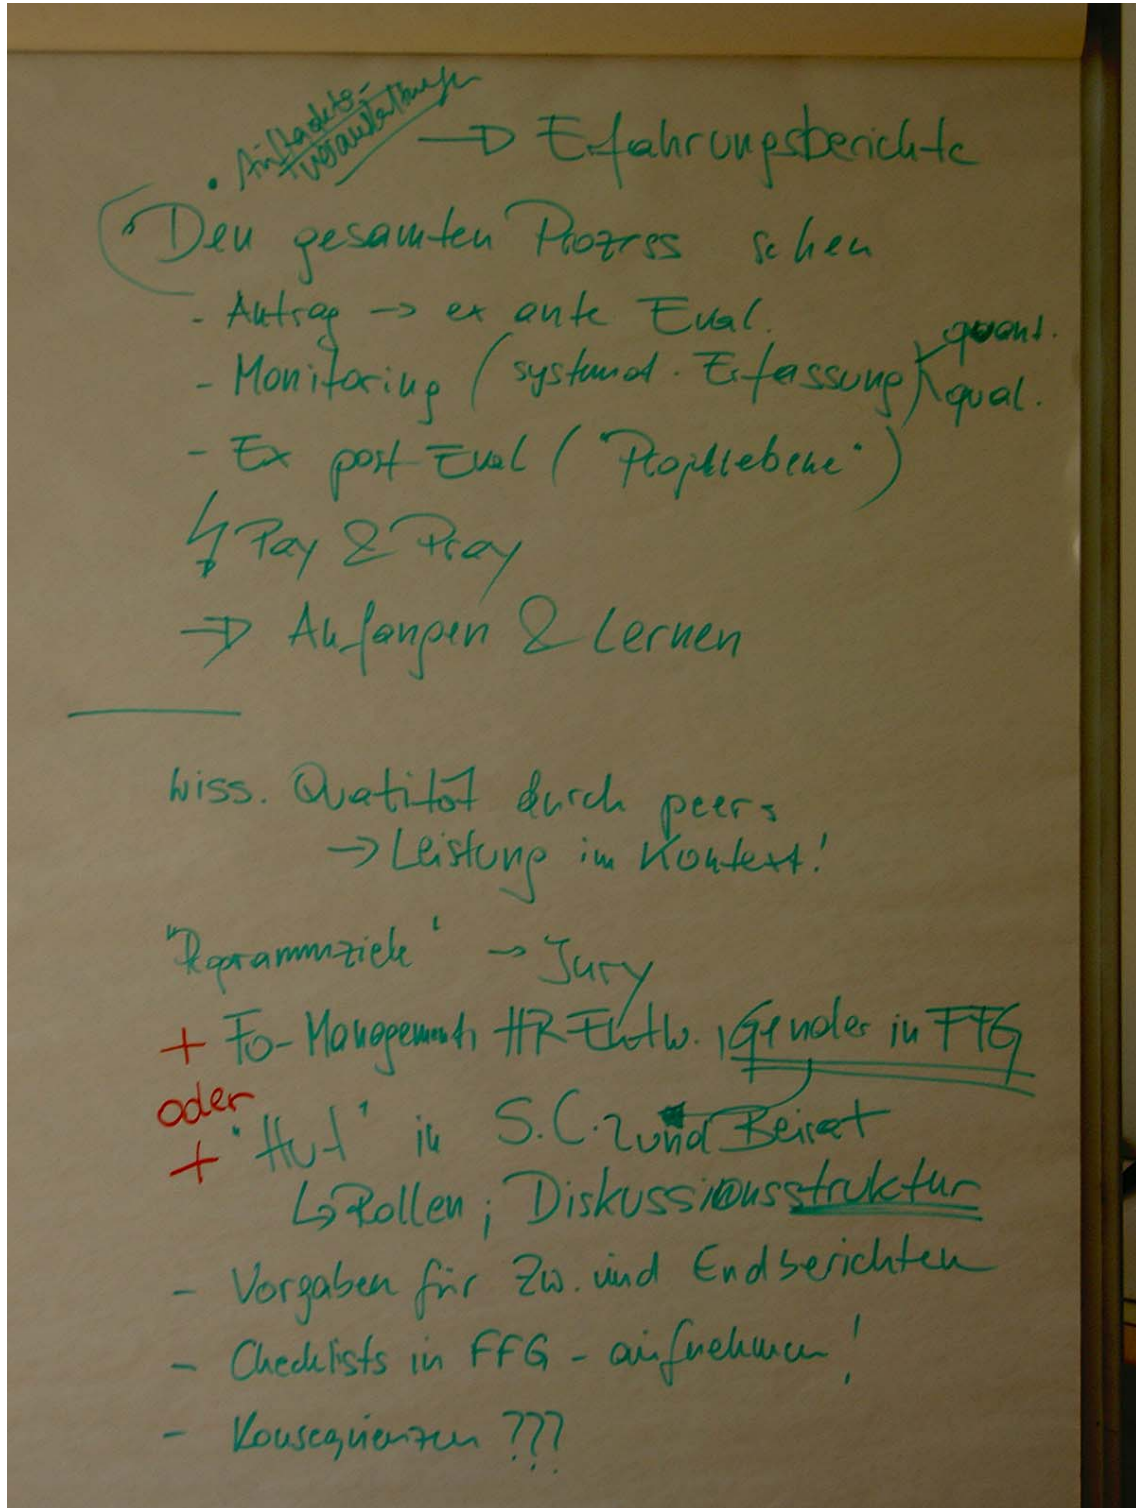 • Auftakts-
veranstaltungen → Erfahrungsberichte
• Den gesamten Prozess sehen
- Antrag → ex ante Eval.
- Monitoring (systemat. Erfassung) quant.
qual.
- Ex post Eval ("Projektebene")
Pay & Pray
→ Anfangen & Lernen
wiss. Qualität durch peers
→ Leistung im Kontext!
"Programmziele" → Jury
+ Fo-Management, HR Entw., Gender in FFG
oder
+ "Hut" in S.C. und Beirat
↳ Rollen; Diskussionsstruktur
- Vorgaben für Zw. und Endberichten
- Checklists in FFG - aufnehmen!
- Konsequenzen ???